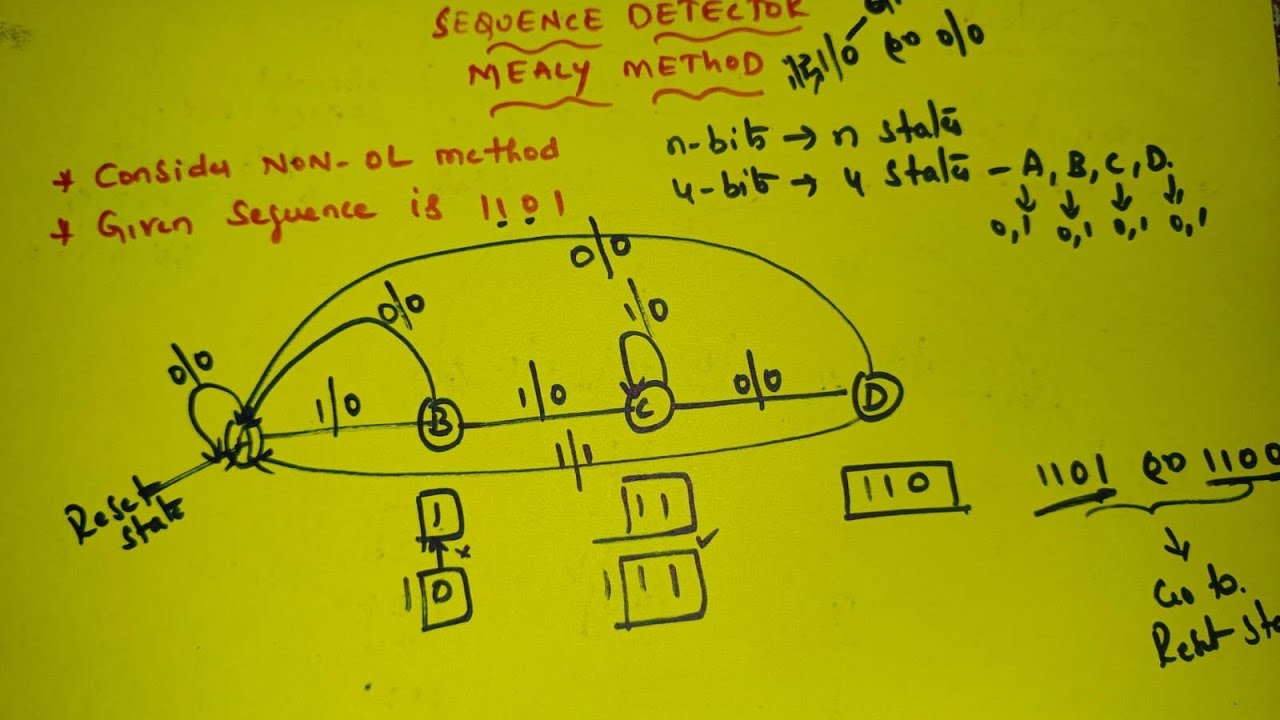 SEQUENCE DETECTOR
MEALY METHOD
1/0
0/0
* Consider NON-OL method
* Given Sequence is 1101
n-bit → n states
4-bit → 4 states - A, B, C, D.
0,1 0,1 0,1 0,1
0/0
0/0
1/0
0/0
1/0
1/0
0/0
A
B
C
D
1/1
Reset
state
1
11
110
1101
1100
x
✓
1 0
1 11
Go to
Reset